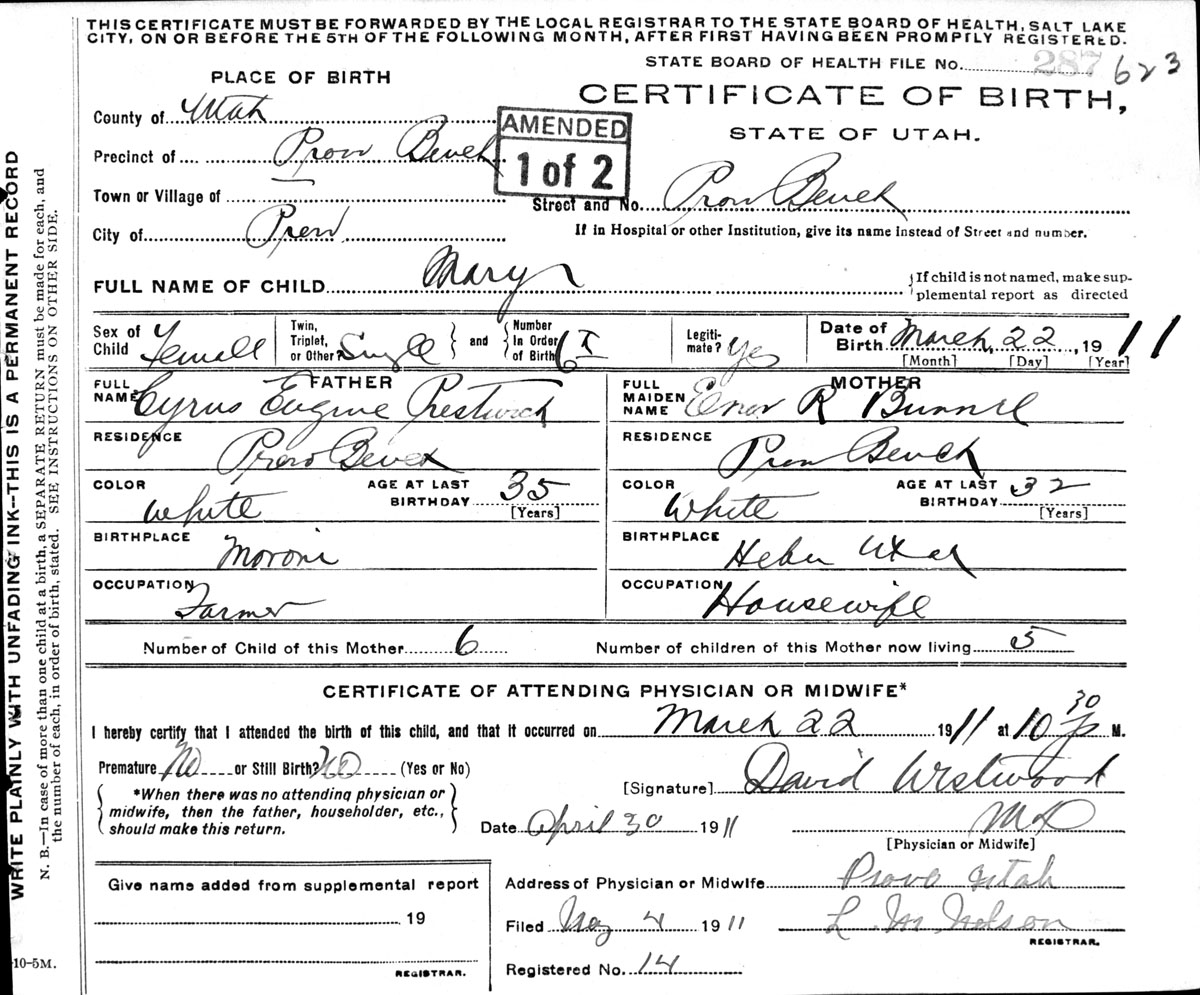 THIS CERTIFICATE MUST BE FORWARDED BY THE LOCAL REGISTRAR TO THE STATE BOARD OF HEALTH, SALT LAKE
CITY, ON OR BEFORE THE 5TH OF THE FOLLOWING MONTH, AFTER FIRST HAVING BEEN PROMPTLY REGISTERED.
STATE BOARD OF HEALTH FILE No. 287 623
PLACE OF BIRTH
CERTIFICATE OF BIRTH,
STATE OF UTAH.
County of Utah
AMENDED
1 of 2
Precinct of Provo Bench
Town or Village of
Street and No. Provo Bench
City of Provo
If in Hospital or other Institution, give its name instead of Street and number.
FULL NAME OF CHILD Mary
{If child is not named, make sup-
plemental report as directed
Sex of Child Female
Twin, Triplet, or Other? Single
and
Number In Order of Birth 6
Legiti-mate? Yes
Date of Birth March 22, 1911
[Month] [Day] [Year]
FATHER
FULL NAME Cyrus Eugene Prestwich
MOTHER
FULL MAIDEN NAME R Bunnel
RESIDENCE Provo Bench
RESIDENCE Provo Bench
COLOR White
AGE AT LAST BIRTHDAY 35
[Years]
COLOR White
AGE AT LAST BIRTHDAY 32
[Years]
BIRTHPLACE Moroni
BIRTHPLACE Heber Utah
OCCUPATION Farmer
OCCUPATION Housewife
Number of Child of this Mother 6
Number of children of this Mother now living 5
CERTIFICATE OF ATTENDING PHYSICIAN OR MIDWIFE*
I hereby certify that I attended the birth of this child, and that it occurred on March 22 1911 at 10 30 P M.
Premature No or Still Birth? No (Yes or No)
[Signature] David Westwood
*When there was no attending physician or
midwife, then the father, householder, etc.,
should make this return.
Date April 30 1911
MD
[Physician or Midwife]
Give name added from supplemental report
19
REGISTRAR.
Address of Physician or Midwife Provo Utah
Filed May 4 1911
L M Nelson
REGISTRAR.
Registered No. 14
WRITE PLAINLY WITH UNFADING INK--THIS IS A PERMANENT RECORD
N. B.—In case of more than one child at a birth, a SEPARATE RETURN must be made for each, and
the number of each, in order of birth, stated. SEE INSTRUCTIONS ON OTHER SIDE.
-10-5M.